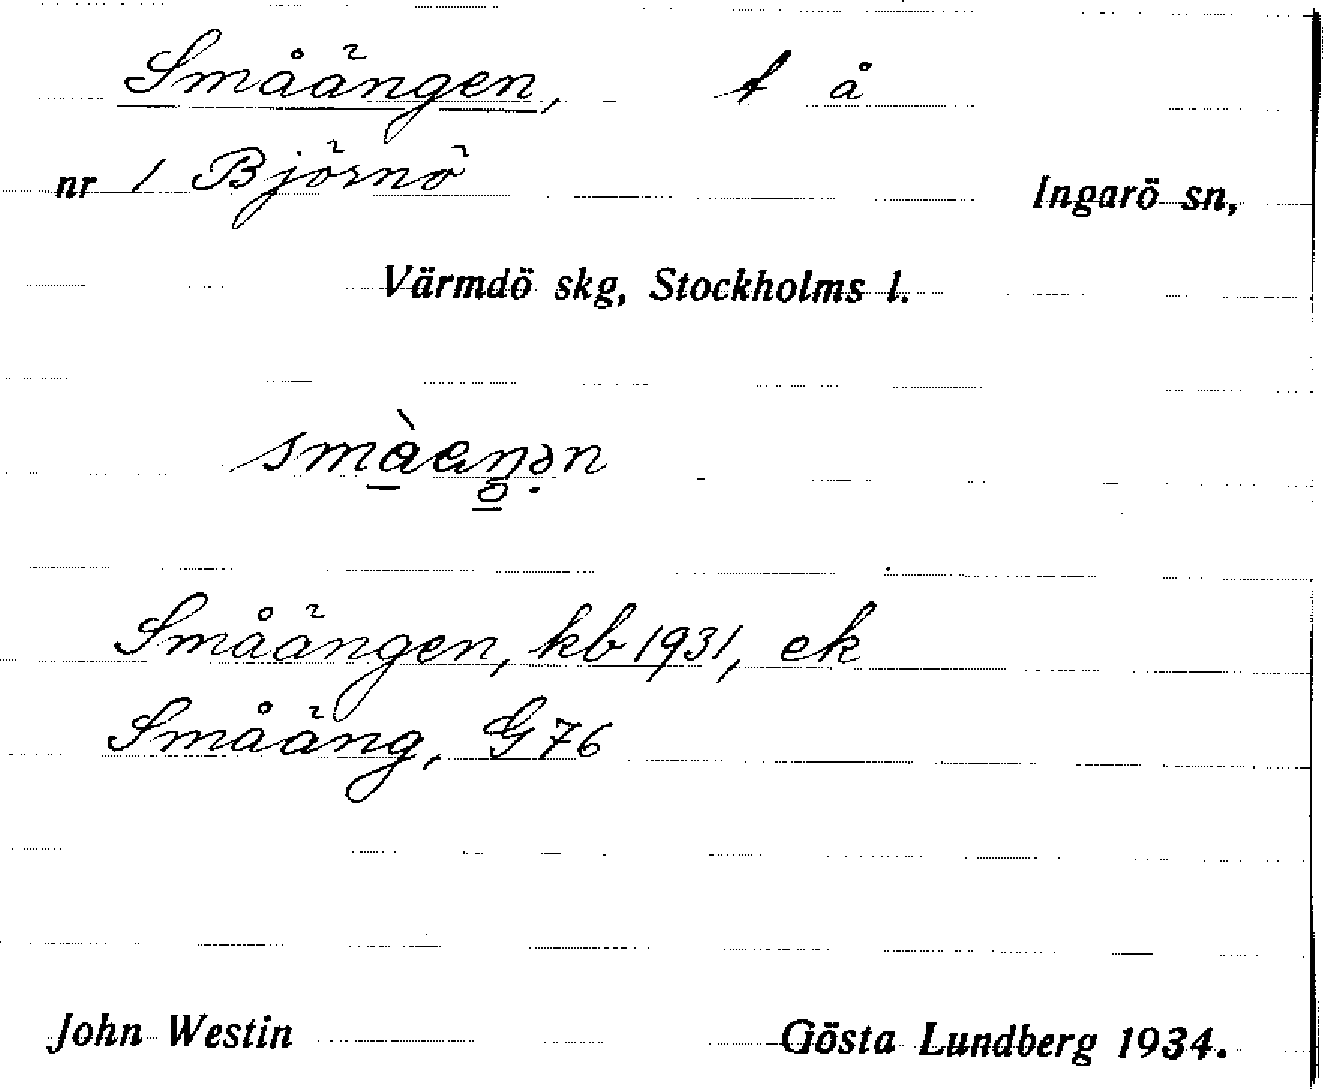 Småängen, f å
nr 1 Björnö Ingarö sn,
Värmdö skg, Stockholms l.
Småängen, kb 1931, ek
Småäng, G 76
John Westin Gösta Lundberg 1934.